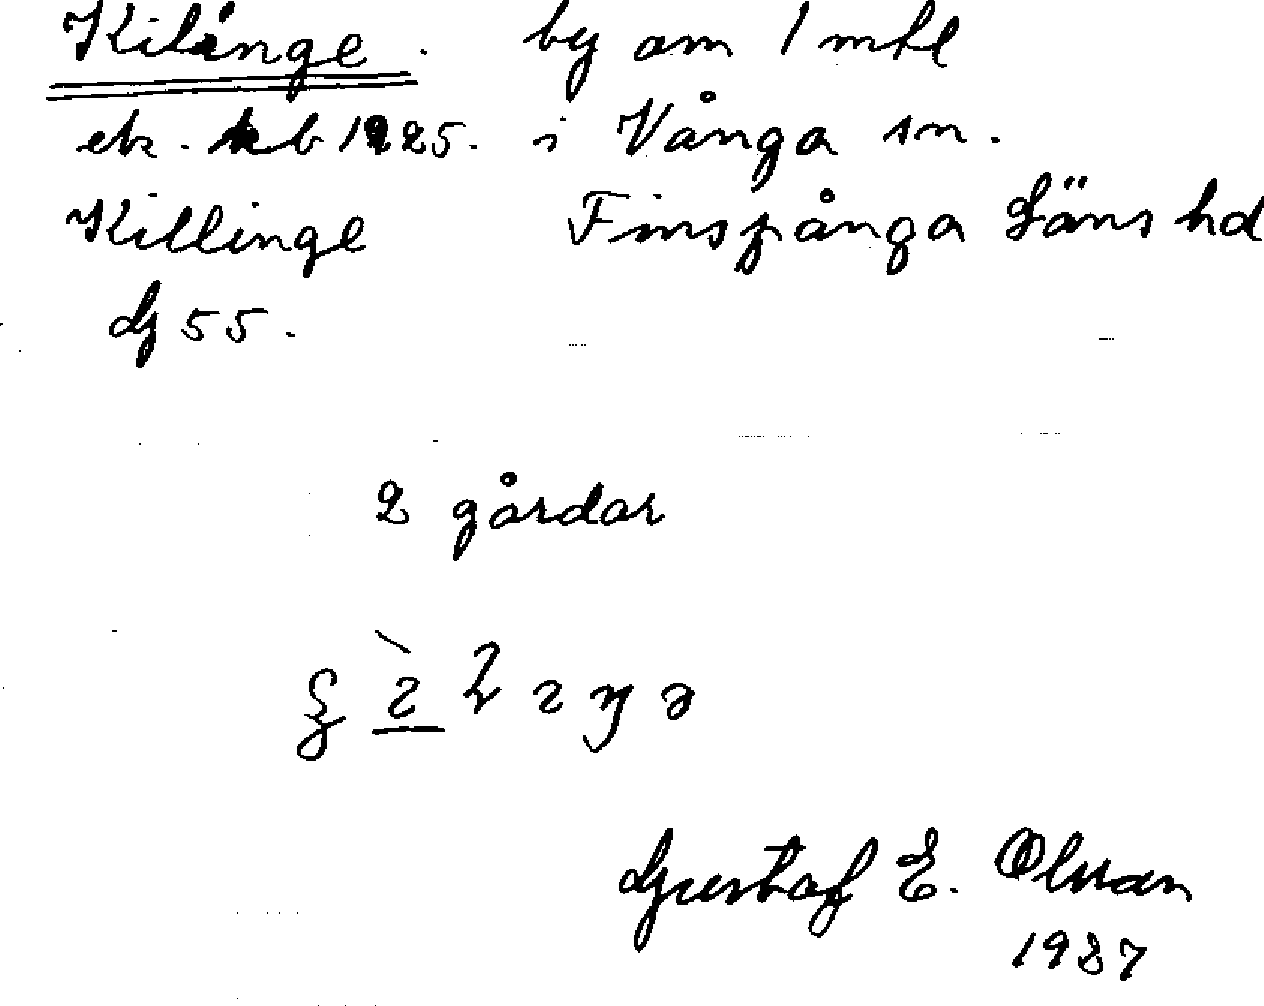 Kilinge. by om 1 mtl
ek. kb 1925. i Vånga sn.
Killinge Finspånga Läns hd
Gj 55.
2 gårdar
Gustaf E. Olsson
1937